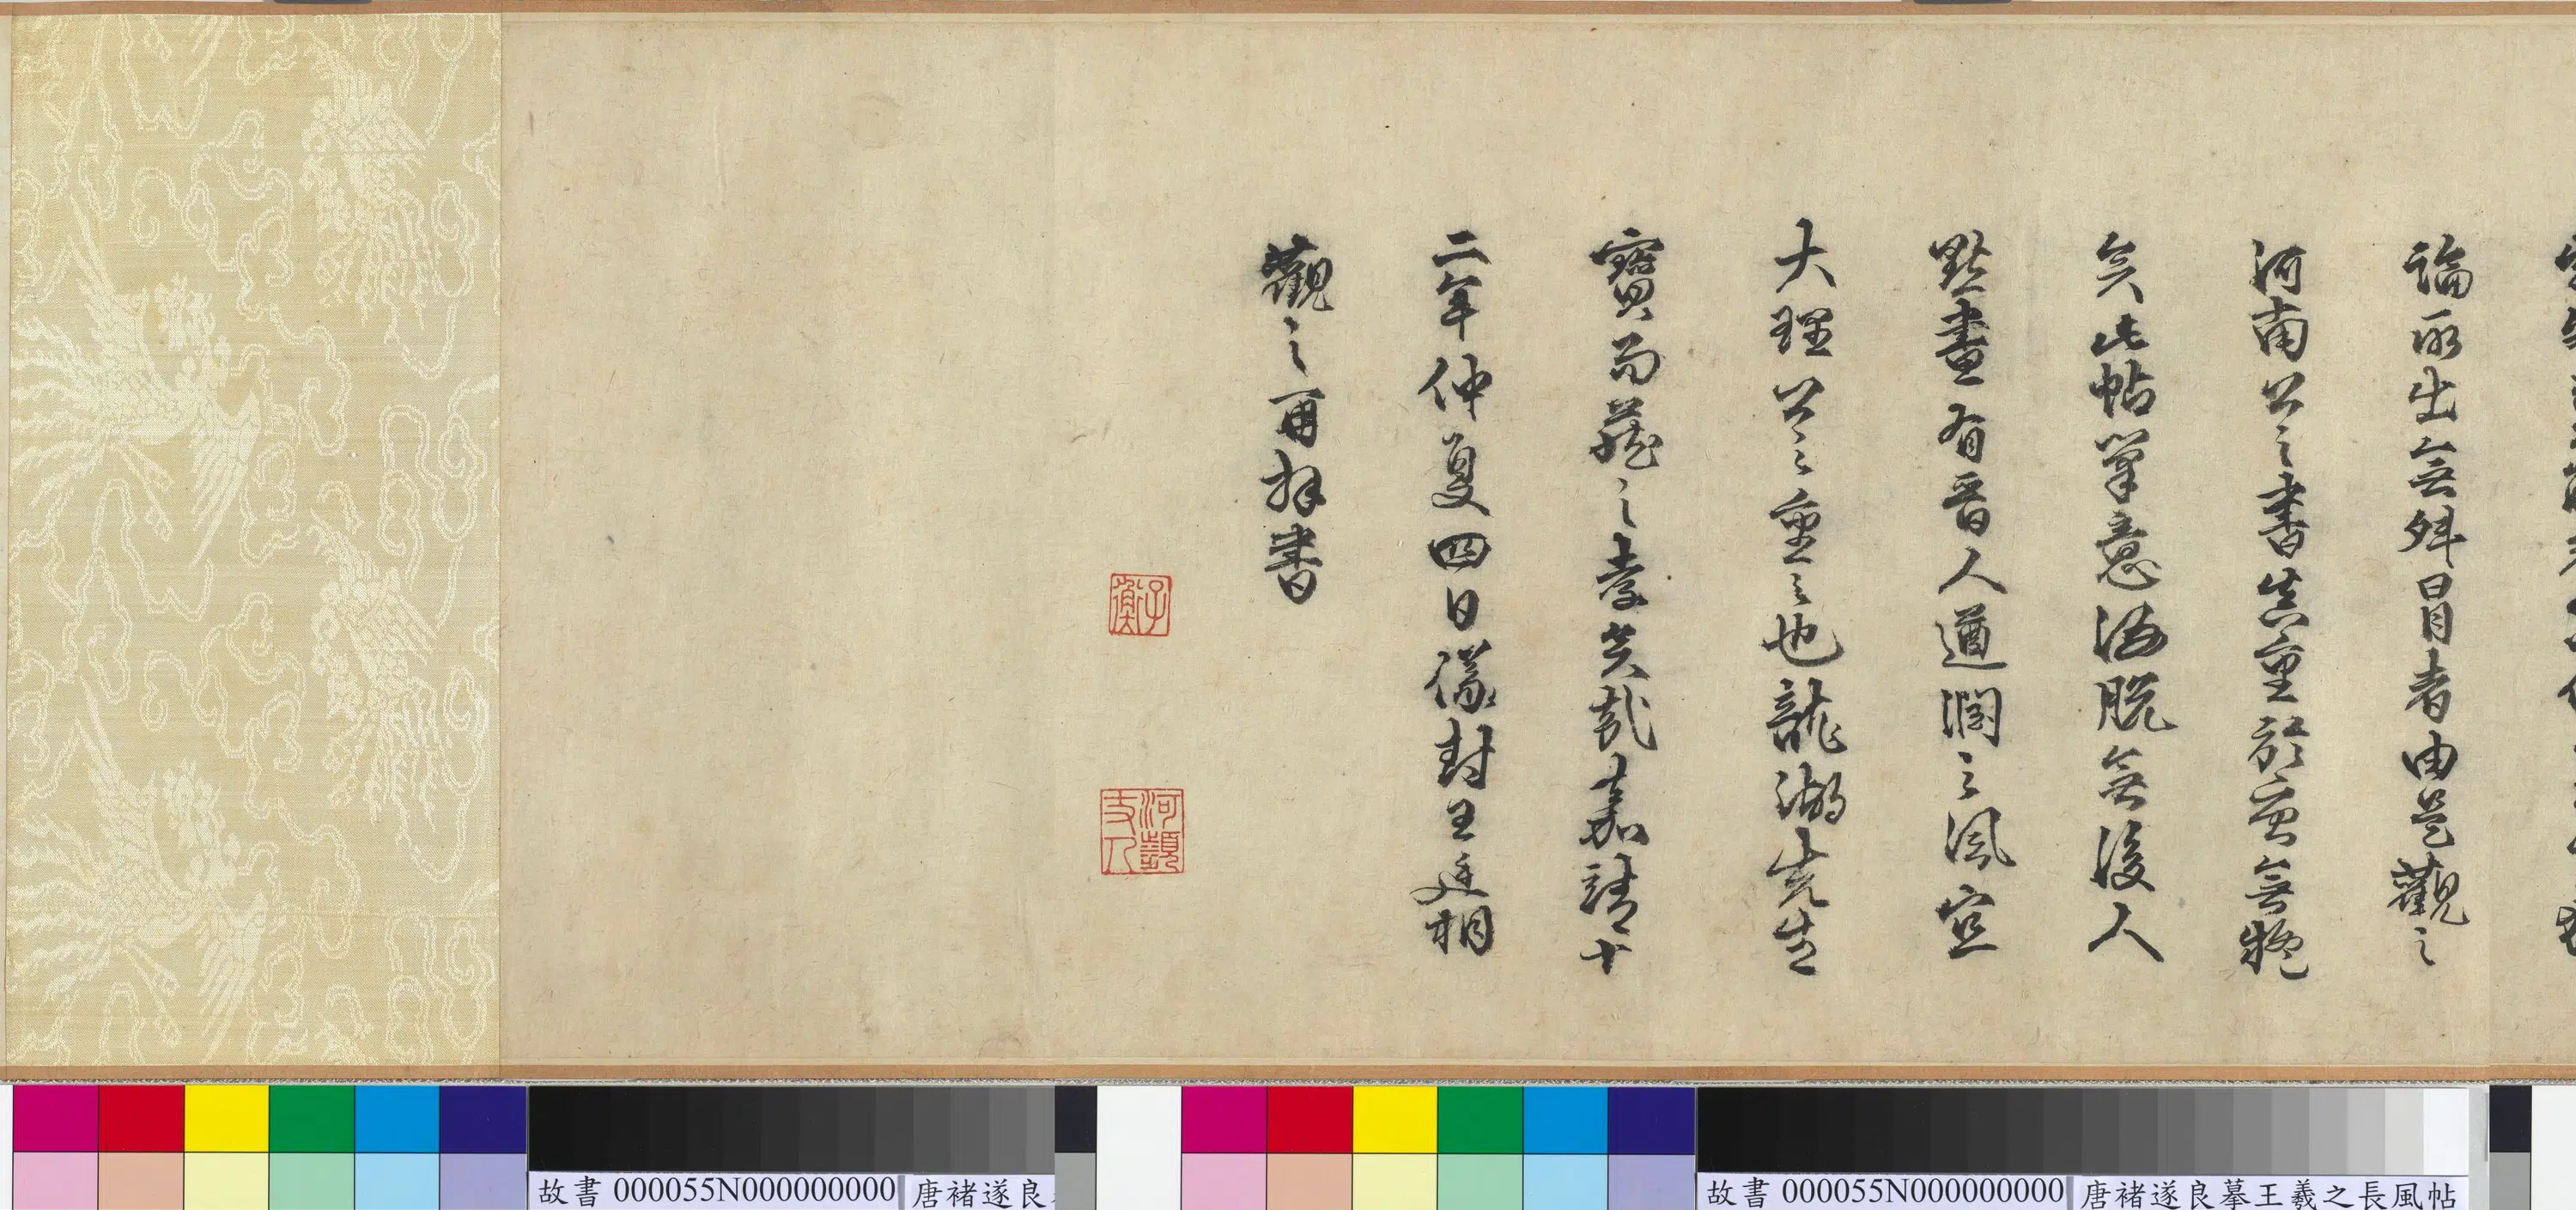 論所出無殊冒者由是觀之
河南公之書實重於前無疑
矣此帖筆意洒脫無後人
點畫有晉人遒潤之風宜
大理公之重之也龍湖先生
寶而藏之孝矣哉嘉靖十
二年仲夏四日儀封王廷相
觀之再拜書
子衡
河
故書 000055N000000000
唐褚遂良
故書 000055N000000000
唐褚遂良摹王羲之長風帖